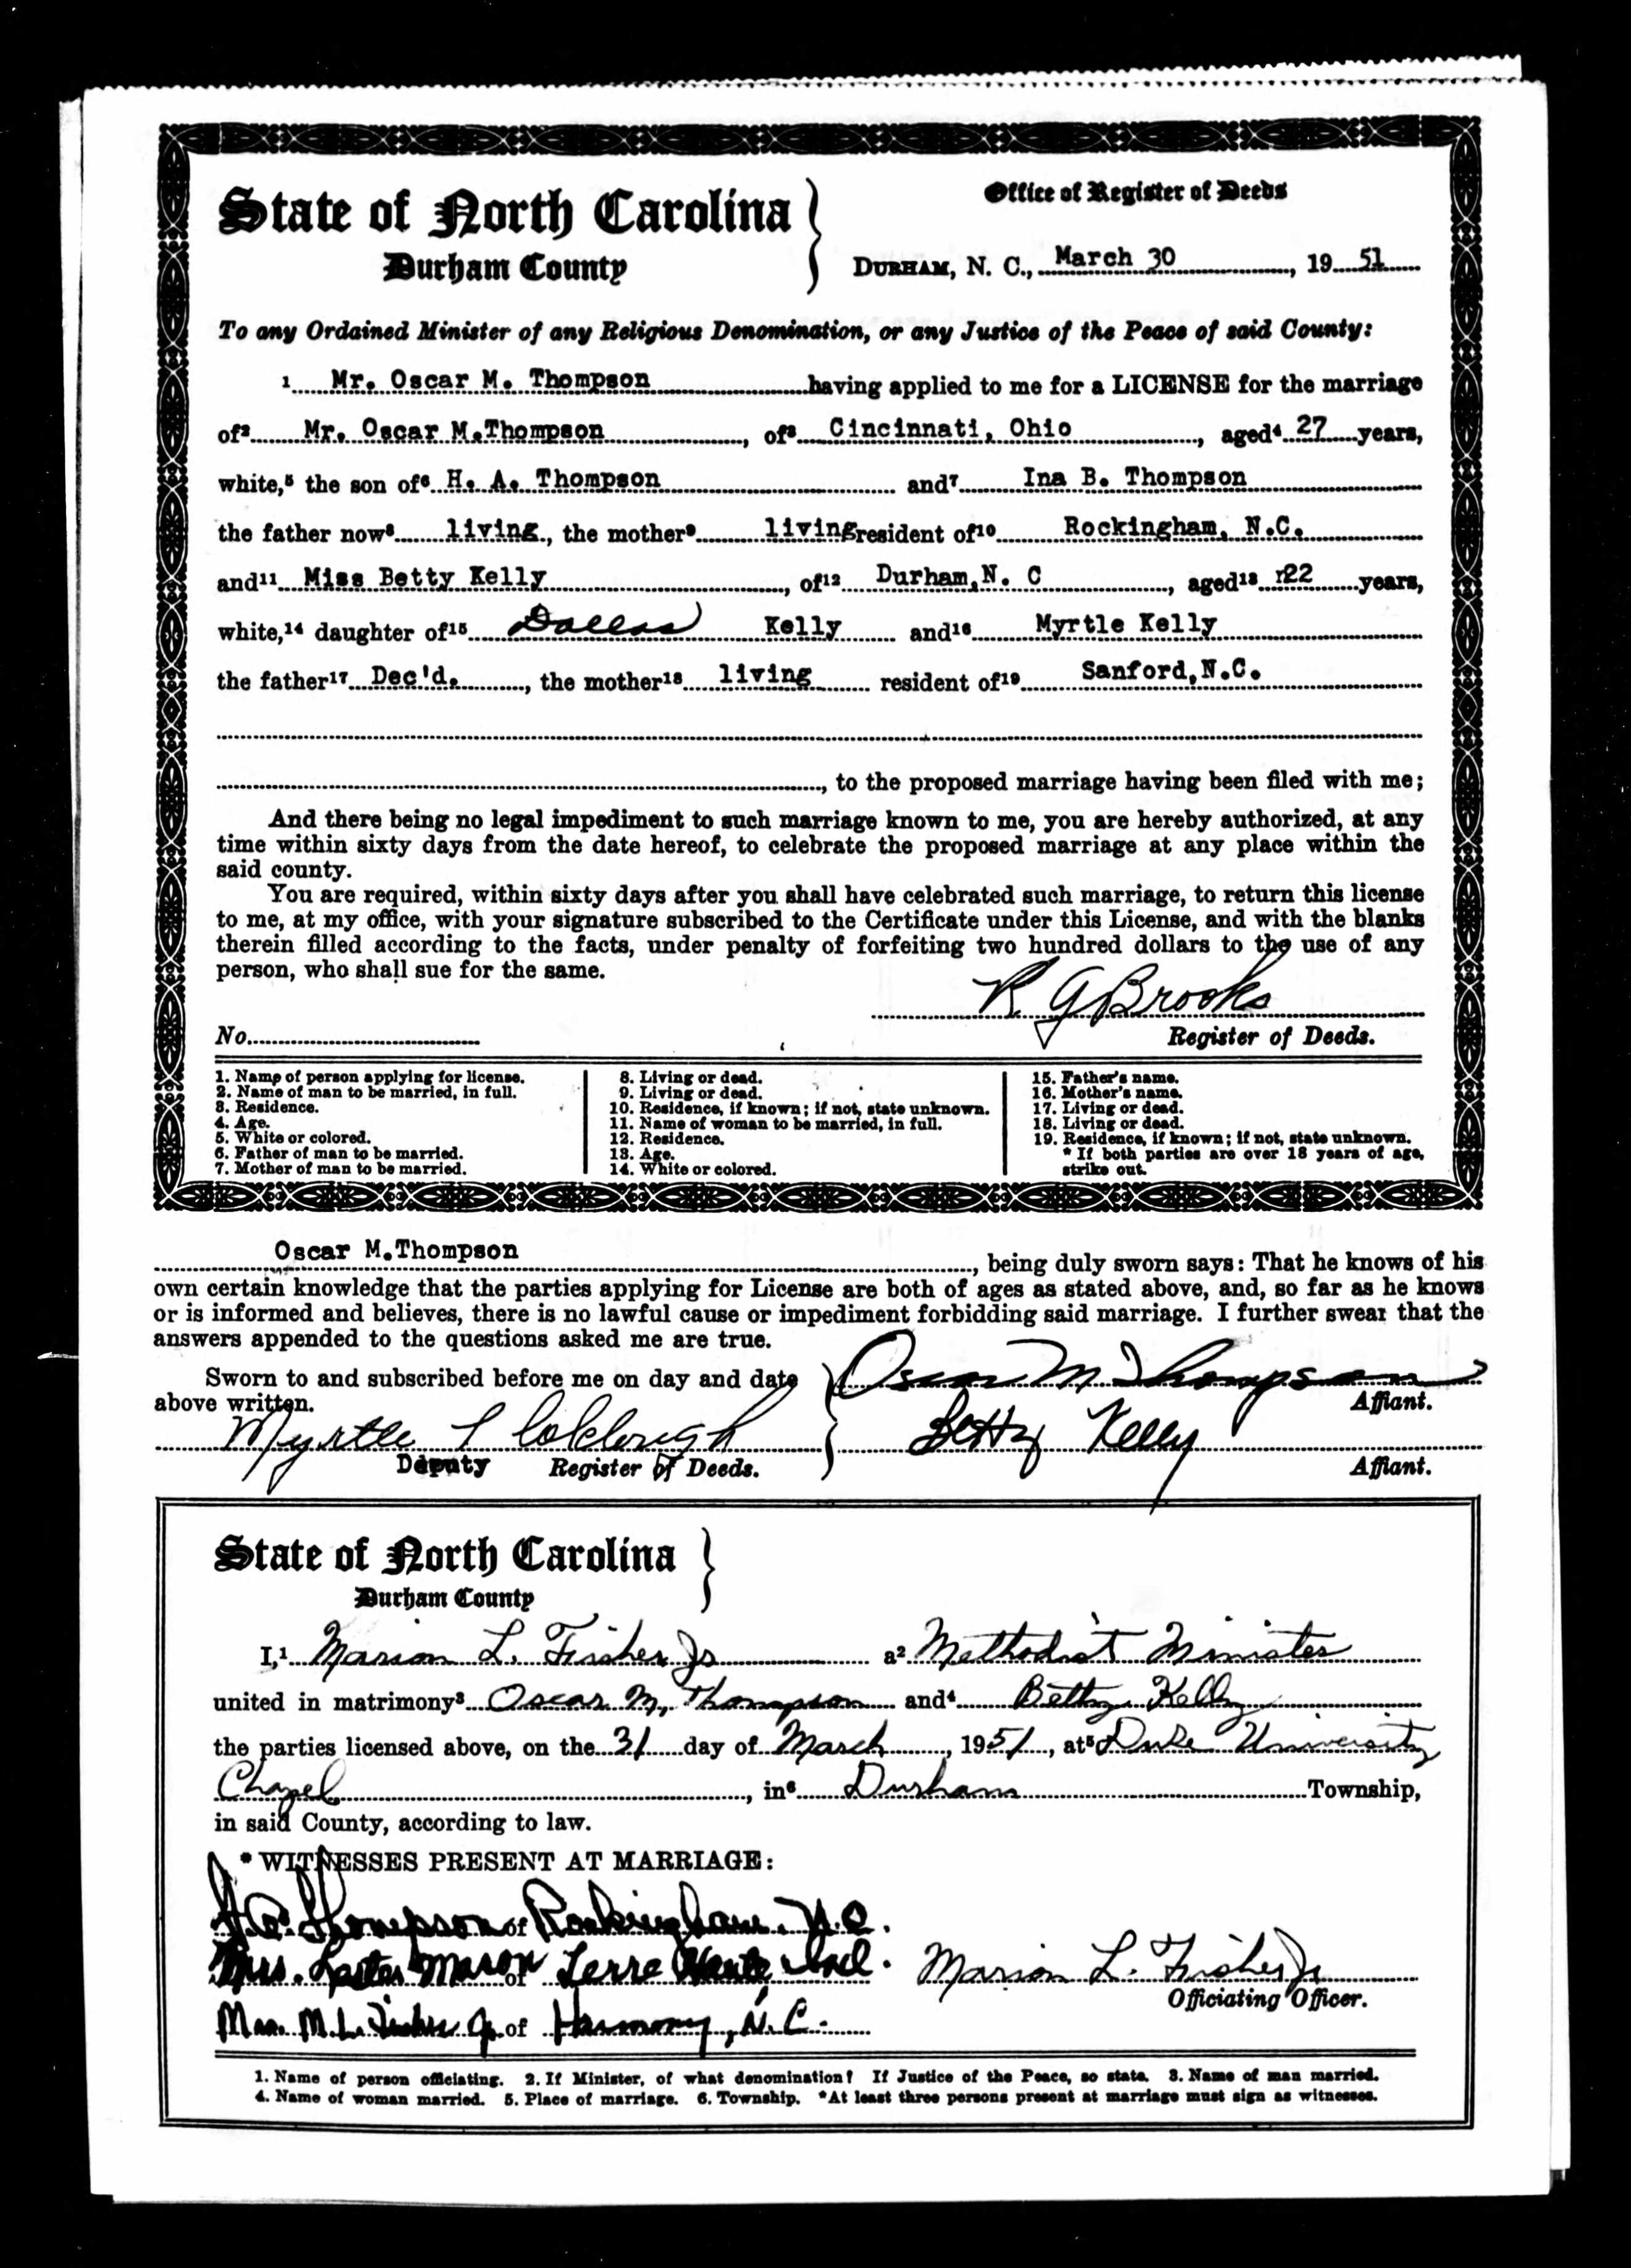 State of North Carolina
Durham County
Office of Register of Deeds
DURHAM, N. C., March 30, 19 51
To any Ordained Minister of any Religious Denomination, or any Justice of the Peace of said County:
1 Mr. Oscar M. Thompson having applied to me for a LICENSE for the marriage
of2 Mr. Oscar M.Thompson, of3 Cincinnati, Ohio, aged4 27 years,
white,5 the son of6 H. A. Thompson and7 Ina B. Thompson
the father now8 living, the mother9 living resident of10 Rockingham, N.C.
and11 Miss Betty Kelly, of12 Durham, N. C, aged13 22 years,
white,14 daughter of15 Dallas Kelly and16 Myrtle Kelly
the father17 Dec'd., the mother18 living resident of19 Sanford, N.C.
, to the proposed marriage having been filed with me;
And there being no legal impediment to such marriage known to me, you are hereby authorized, at any
time within sixty days from the date hereof, to celebrate the proposed marriage at any place within the
said county.
You are required, within sixty days after you shall have celebrated such marriage, to return this license
to me, at my office, with your signature subscribed to the Certificate under this License, and with the blanks
therein filled according to the facts, under penalty of forfeiting two hundred dollars to the use of any
person, who shall sue for the same.
R G Brooks
No. Register of Deeds.
1. Name of person applying for license.
2. Name of man to be married, in full.
3. Residence.
4. Age.
5. White or colored.
6. Father of man to be married.
7. Mother of man to be married.
8. Living or dead.
9. Living or dead.
10. Residence, if known; if not, state unknown.
11. Name of woman to be married, in full.
12. Residence.
13. Age.
14. White or colored.
15. Father's name.
16. Mother's name.
17. Living or dead.
18. Living or dead.
19. Residence, if known; if not, state unknown.
* If both parties are over 18 years of age,
strike out.
Oscar M.Thompson, being duly sworn says: That he knows of his
own certain knowledge that the parties applying for License are both of ages as stated above, and, so far as he knows
or is informed and believes, there is no lawful cause or impediment forbidding said marriage. I further swear that the
answers appended to the questions asked me are true.
Sworn to and subscribed before me on day and date
above written.
Oscar M Thompson
Affiant.
Myrtle L Coleclough
Betty Kelly
Deputy Register of Deeds.
Affiant.
State of North Carolina
Durham County
I,1 Marion L. Fisher Jr a2 Methodist Minister
united in matrimony3 Oscar M. Thompson and4 Betty Kelly
the parties licensed above, on the 31 day of March, 1951, at5 Duke University
Chapel, in6 Durham Township,
in said County, according to law.
* WITNESSES PRESENT AT MARRIAGE:
H.A. Thompson of Rockingham, N.C.
Mrs. Lester Mason of Terre Haute Ind.
Marion L. Fisher Jr
Officiating Officer.
Mrs. M.L. Fisher Jr. of Harmony, N.C.
1. Name of person officiating. 2. If Minister, of what denomination? If Justice of the Peace, so state. 3. Name of man married.
4. Name of woman married. 5. Place of marriage. 6. Township. *At least three persons present at marriage must sign as witnesses.